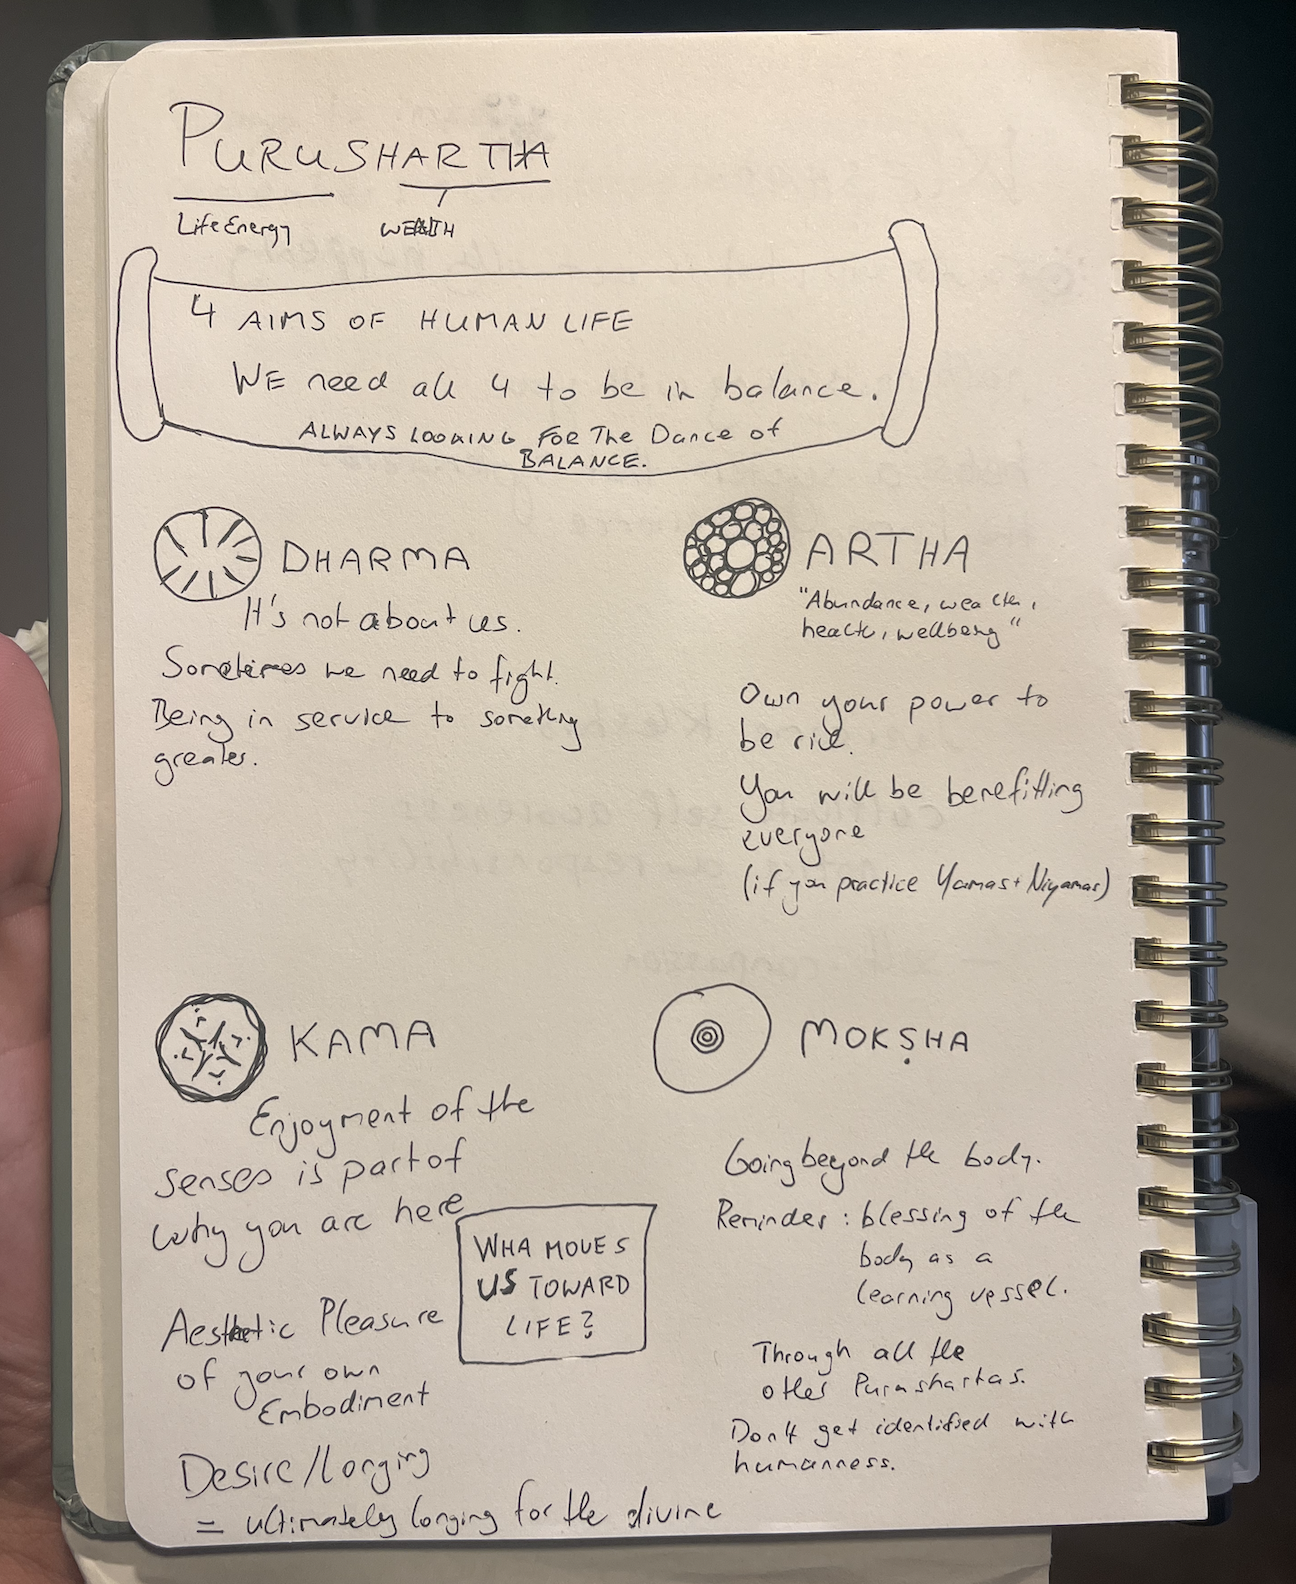 PURUSHARTHA
Life Energy
WEALTH
4 AIMS OF HUMAN LIFE
WE need all 4 to be in balance.
ALWAYS LOOKING FOR The Dance of
BALANCE.
DHARMA
It's not about us.
Sometimes we need to fight.
Being in service to something
greater.
ARTHA
"Abundance, wealth,
health, wellbeing"
Own your power to
be rich.
You will be benefitting
everyone
(if you practice Yamas + Niyamas)
KAMA
Enjoyment of the
senses is part of
why you are here
WHA MOVES
US TOWARD
LIFE?
Aesthetic Pleasure
of your own
Embodiment
Desire/Longing
= ultimately longing for the divine
MOKṢHA
Going beyond the body.
Reminder: blessing of the
body as a
learning vessel.
Through all the
other Purushartas.
Don't get identified with
humanness.